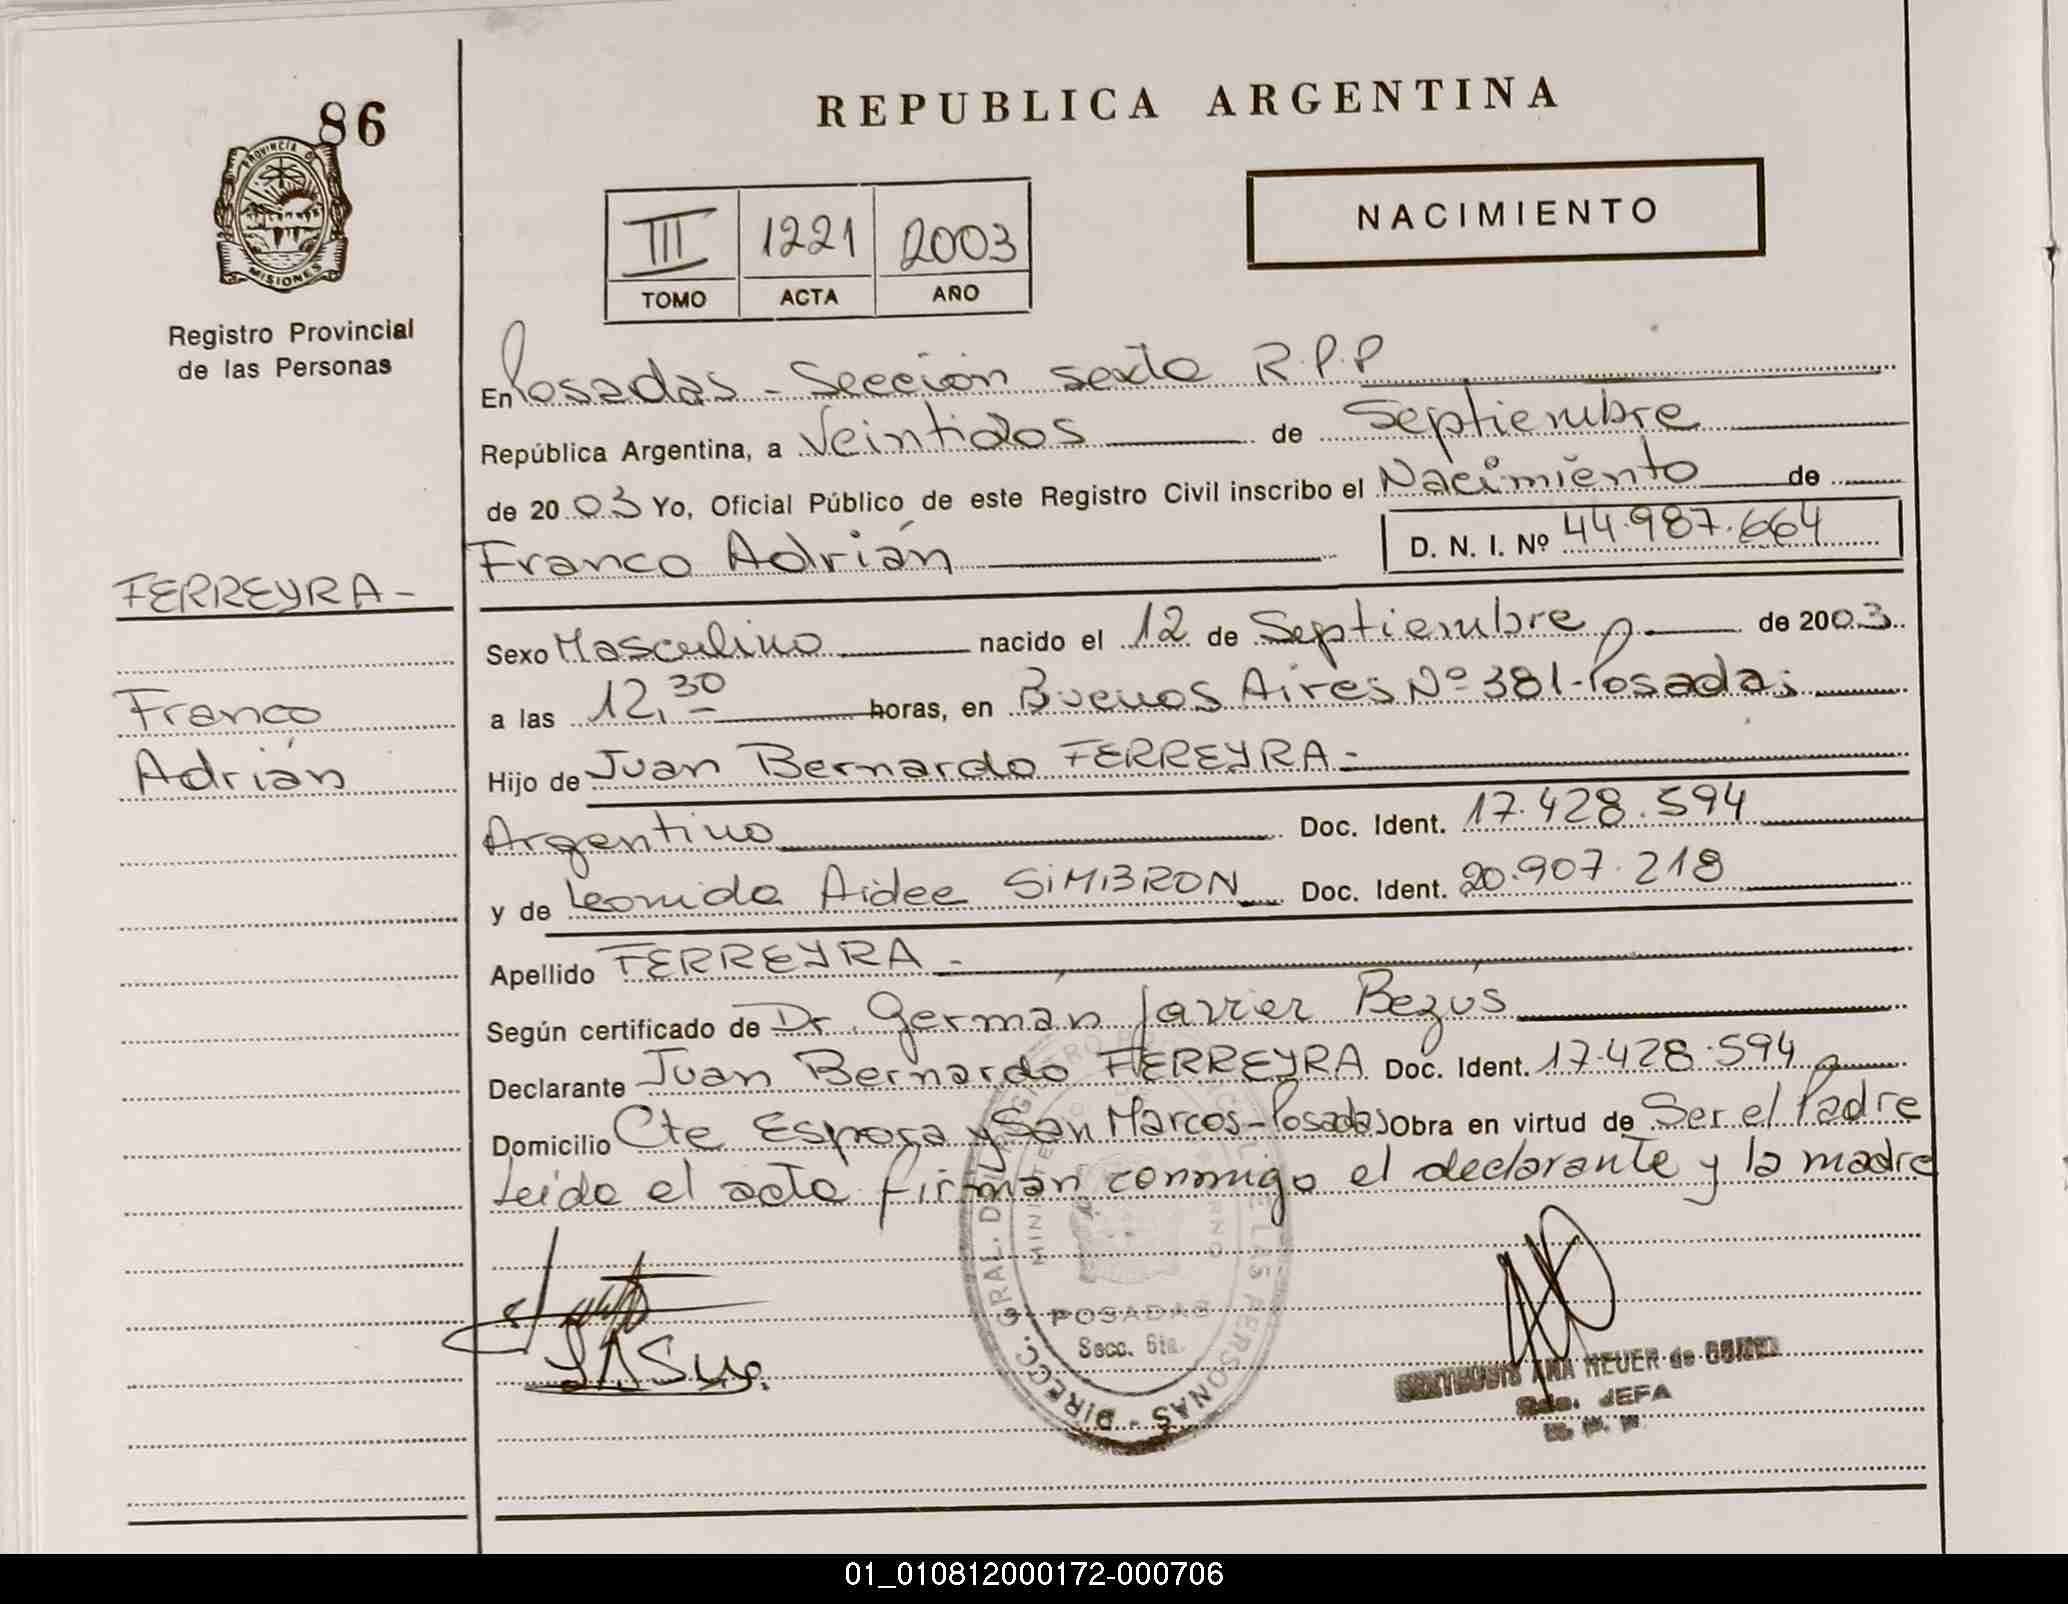 REPUBLICA ARGENTINA
86
PROVINCIA DE MISIONES
Registro Provincial
de las Personas
III 1221 2003
TOMO ACTA AÑO
NACIMIENTO
En Posadas - Sección sexta R.P.P
República Argentina, a Veintidos de Septiembre
de 2003 Yo, Oficial Público de este Registro Civil inscribo el Nacimiento de
Franco Adrián D. N. I. Nº 44.987.664
FERREYRA -
Franco
Adrián
Sexo Masculino nacido el 12 de Septiembre de 2003
a las 12,30 horas, en Buenos Aires Nº 381-Posadas
Hijo de Juan Bernardo FERREYRA -
Argentino Doc. Ident. 17.428.594
y de Leonida Aidee SIMBRON Doc. Ident. 20.907.218
Apellido FERREYRA -
Según certificado de Dr. Germán Javier Bezús
Declarante Juan Bernardo FERREYRA Doc. Ident. 17.428.594
Domicilio Cte Espora y San Marcos - Posadas Obra en virtud de Ser el Padre
Leída el acta firman conmigo el declarante y la madre
POSADAS
Secc. 6ta.
ANA HEUER de
JEFA
01_010812000172-000706